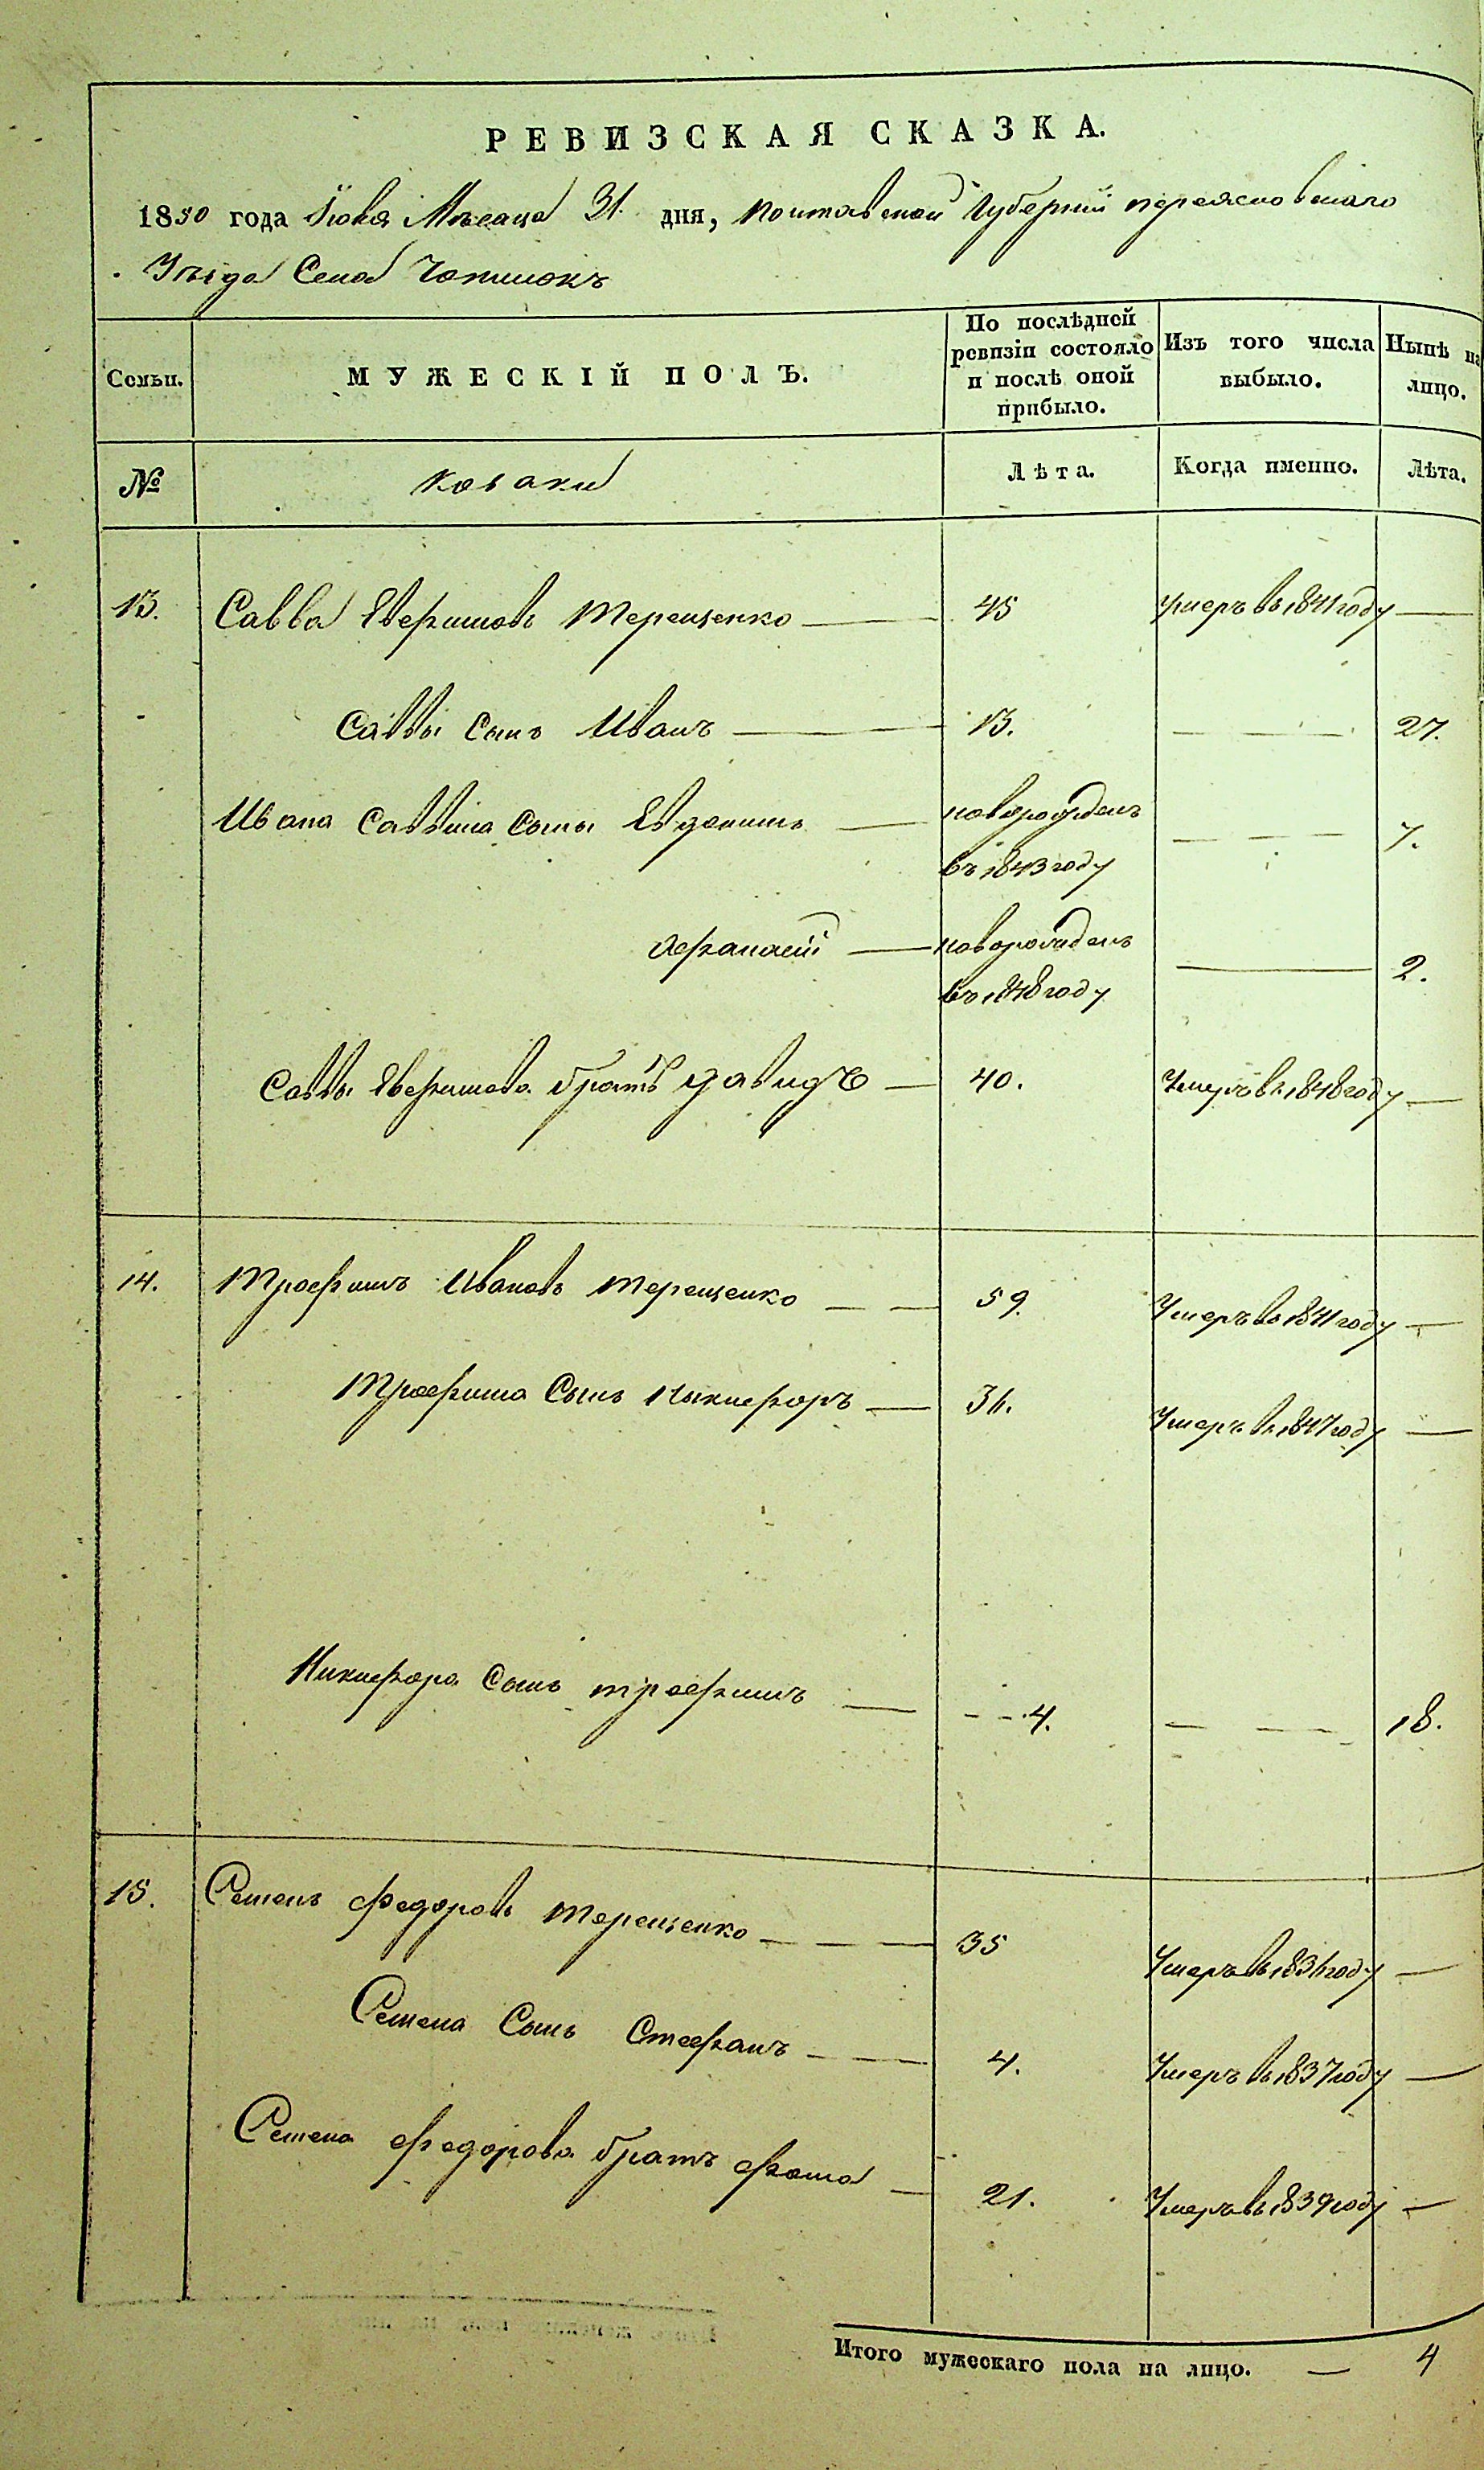 РЕВИЗСКАЯ СКАЗКА.
1850 года Iюля Мѣсяца 31. дня, Полтавской Губернiи переясловскаго
Уѣзда Села Чопилокъ
Семьи. МУЖЕСКIЙ ПОЛЪ. По послѣдней ревизiи состояло и послѣ оной прибыло. Изъ того числа выбыло. Нынѣ на лицо.
№ козаки Лѣта. Когда именно. Лѣта.
13. Савва Ефимовъ Терещенко — 45 умеръ въ 1841 году —
Саввы Сынъ Иванъ — 13. — 27.
Ивана Саввина Сыны Евдокимъ — новорожденъ — 7.
въ 1843 году
Афанасiй — новорожденъ — 2.
въ 1848 году
Саввы братъ давидъ — 40. Умеръ въ 1848 году —
14. Трофимъ Ивановъ терещенко — 59. Умеръ въ 1841 году —
Трофима Сынъ Никифоръ — 36. Умеръ въ 1847 году —
Никифора Сынъ трофимъ — 4. — 18.
15. Семенъ Федоровъ терещенко — 35 Умеръ въ 1836 году —
Семена Сынъ Стефанъ — 4. Умеръ въ 1837 году —
Семена Федорова братъ фома — 21. Умеръ въ 1839 году —
Итого мужескаго пола на лицо. — 4